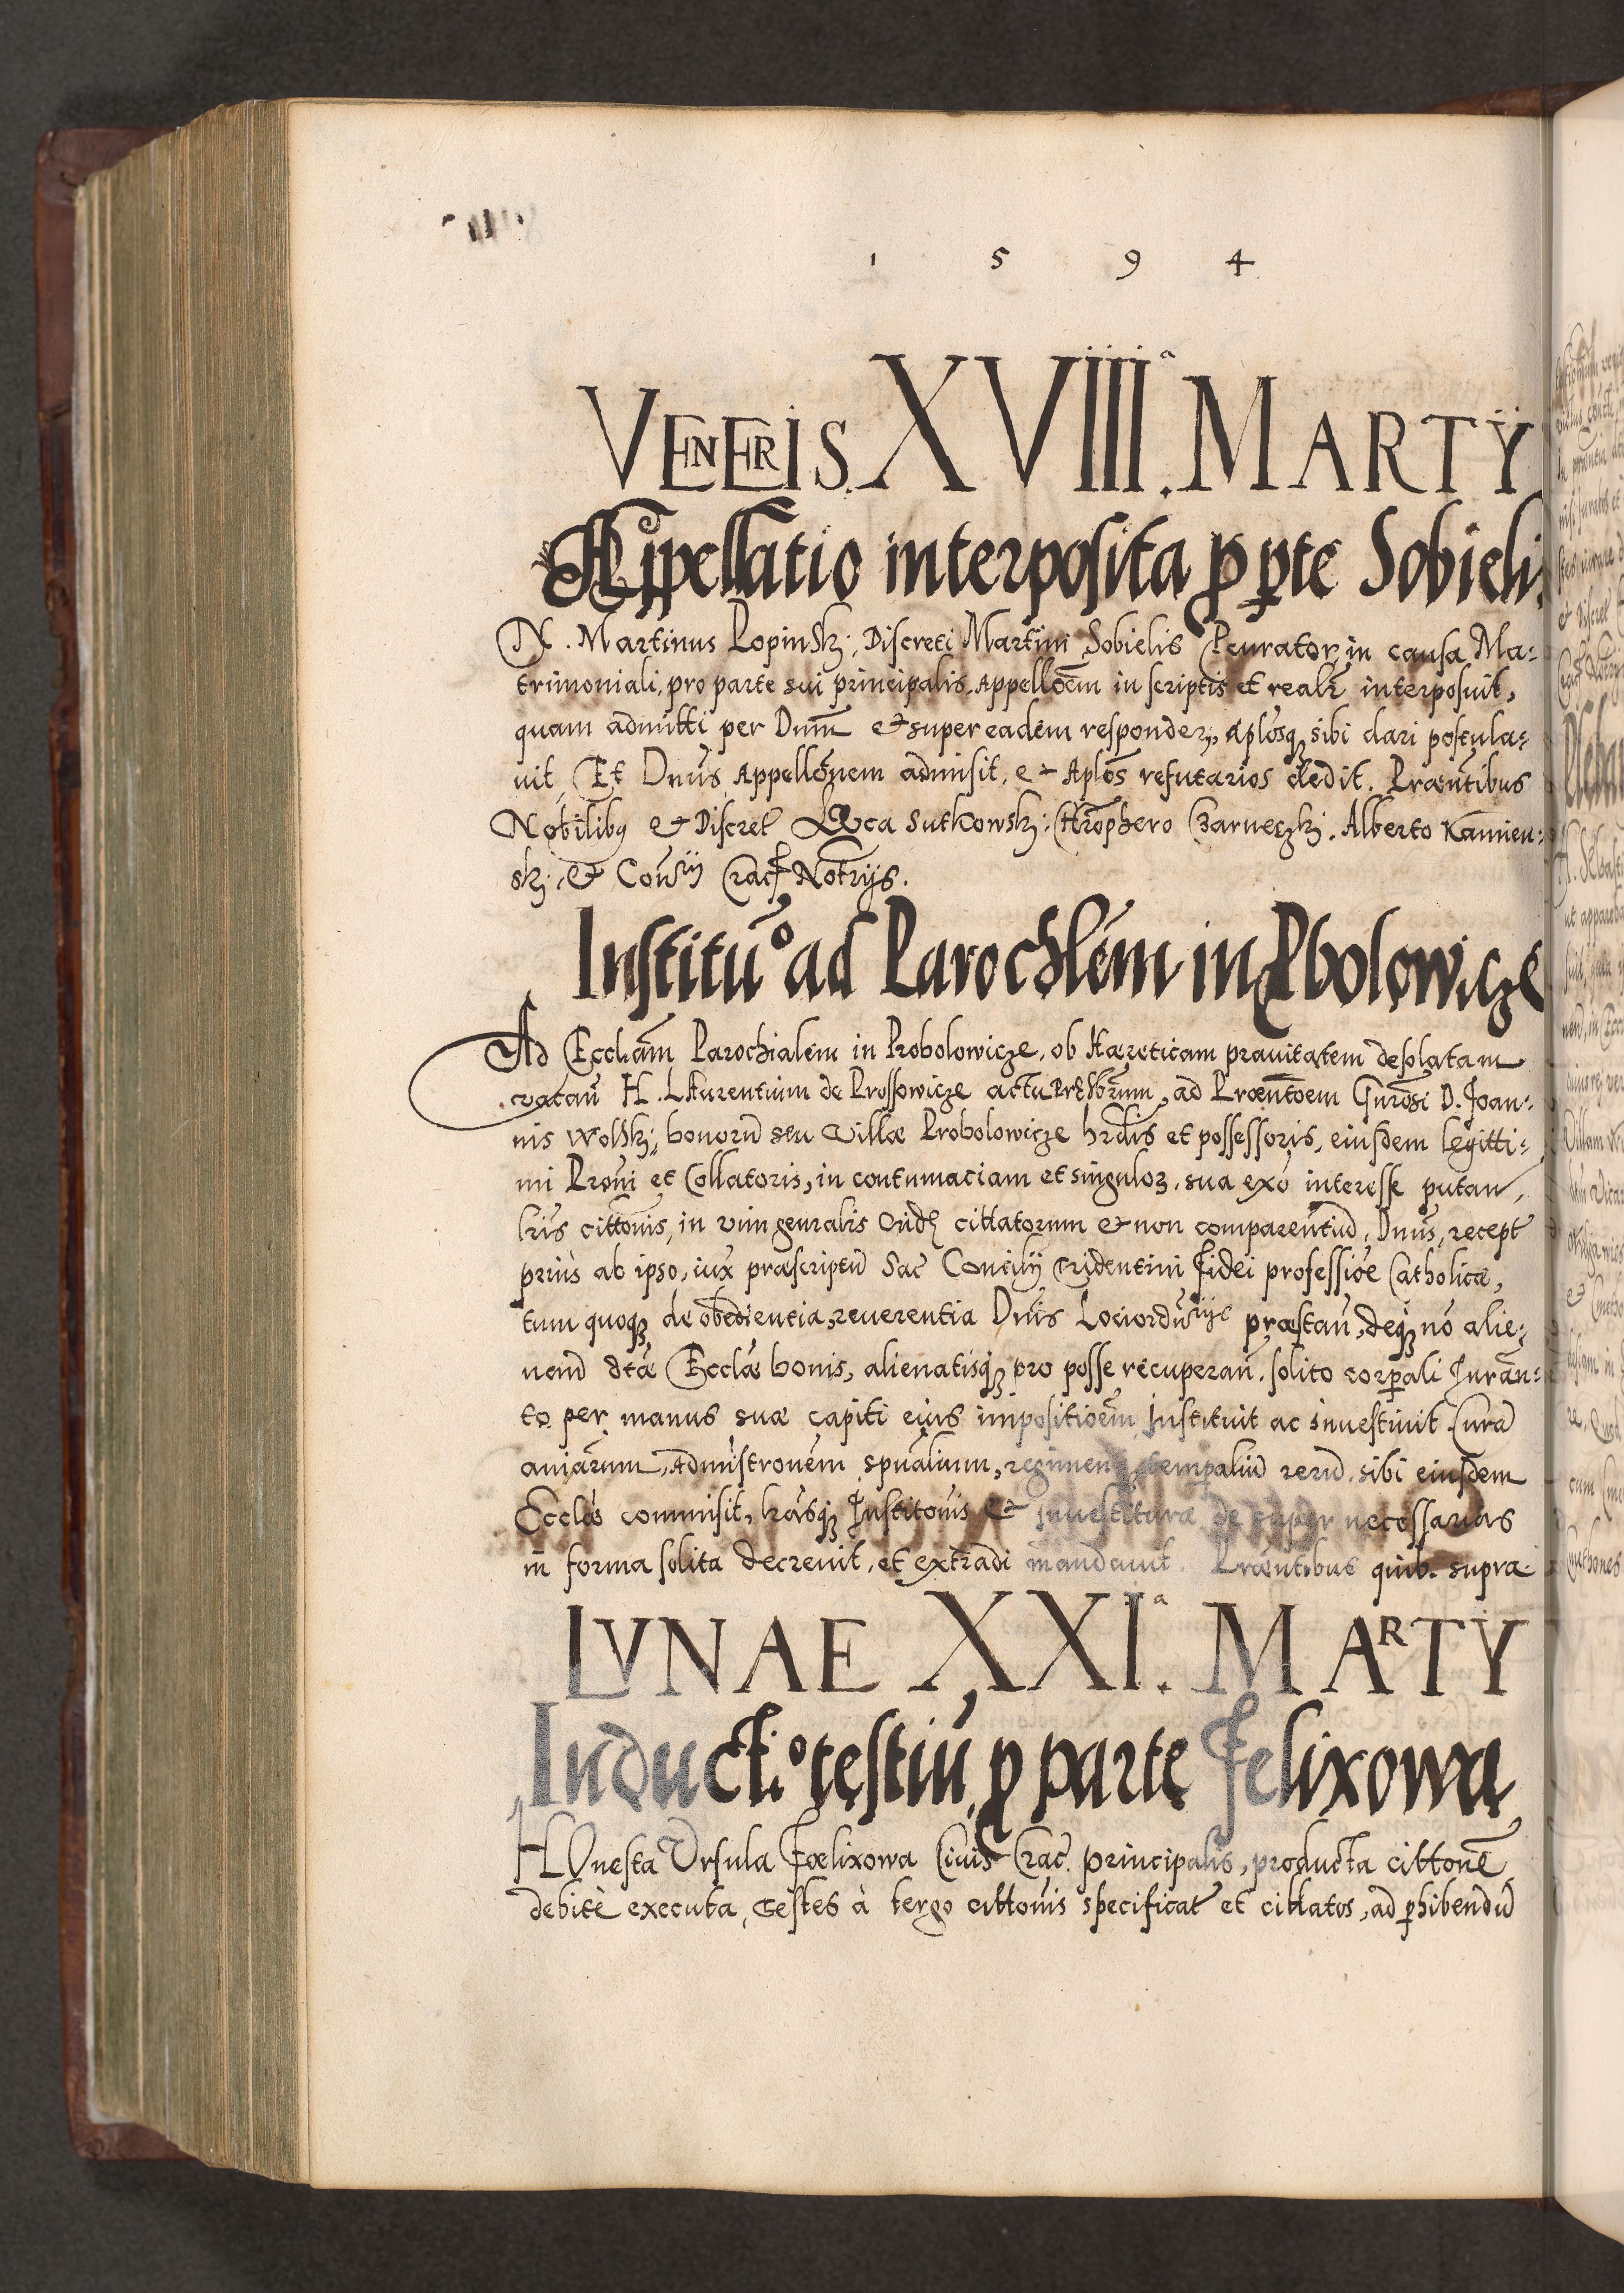 1 5 9 4
VENERIS. XVIIII.ª MARTŸ
Appellatio interposita ꝓ ꝑte Sobieli
N. Martinus Lopinskj, Discreti Martini Sobielis Pcurator, in causa Ma-
trimoniali, pro parte sui principalis, Appellõem in scriptis et realr interposuit,
quam admitti per Dnm et super eadem responderj, Aplosqꝫ sibi dari postula-
uit, Et Dnus Appellonem admisit, et Aplos refutatorios dedit. Præntibus
Nobilibus et Discret Luca Sutkowskj, Chrophero Czarneczkj, Alberto Kamien-
skj, et Consÿ Crac Notrijs.
Institu° ad Parochlem in Pbolowicze
Ad Eccliam Parochialem in Probolowicze, ob Hæreticam prauitatem desolatam
vacan H. Laurentium de Prossowicze actu Prsbrum, ad Præntoem Gnrosi D. Joan-
nis Wolskj, bonorũ seu Villæ Probolowicze hrdis et possessoris, eiusdem legitti-
mi Proni et Collatoris, in contumaciam et singuloꝝ, sua exõ interesse putan,
lris cittonis, in vim genralis cittatorum et non comparentiũ, Dnus, recept
prius ab ipso, iux præscriptũ Sac Concilÿ Tridentini fidei professioe Catholicæ,
tum quoqꝫ de obedientia, reuerentia Dnis Lociordũ præstan, deqꝫ nõ alie-
nand dtæ Ecclæ bonis, alienatisqꝫ pro posse recuperan, solito corꝑali Juran-
to per manus suæ capiti eius impositioem Instituit ac inuestiuit Curã
aniarum, Admistronem spualium, regimenqꝫ tempaliũ rerũ, sibi eiusdem
Ecclæ commisit, lrasqꝫ Institonis et inuestituræ de super necessarias
in forma solita decreuit, et extradi mandauit. Præntibus quib. supra
LVNAE XXI.ª MARTY
Inducti° testiũ ꝓ parte Felixowa
HOnesta Vrsula Fœlixowa Ciuis Crac. principalis, producta cittone
debitè executa, testes à tergo cittonis specificat et cittatos, ad ꝑhibendũ